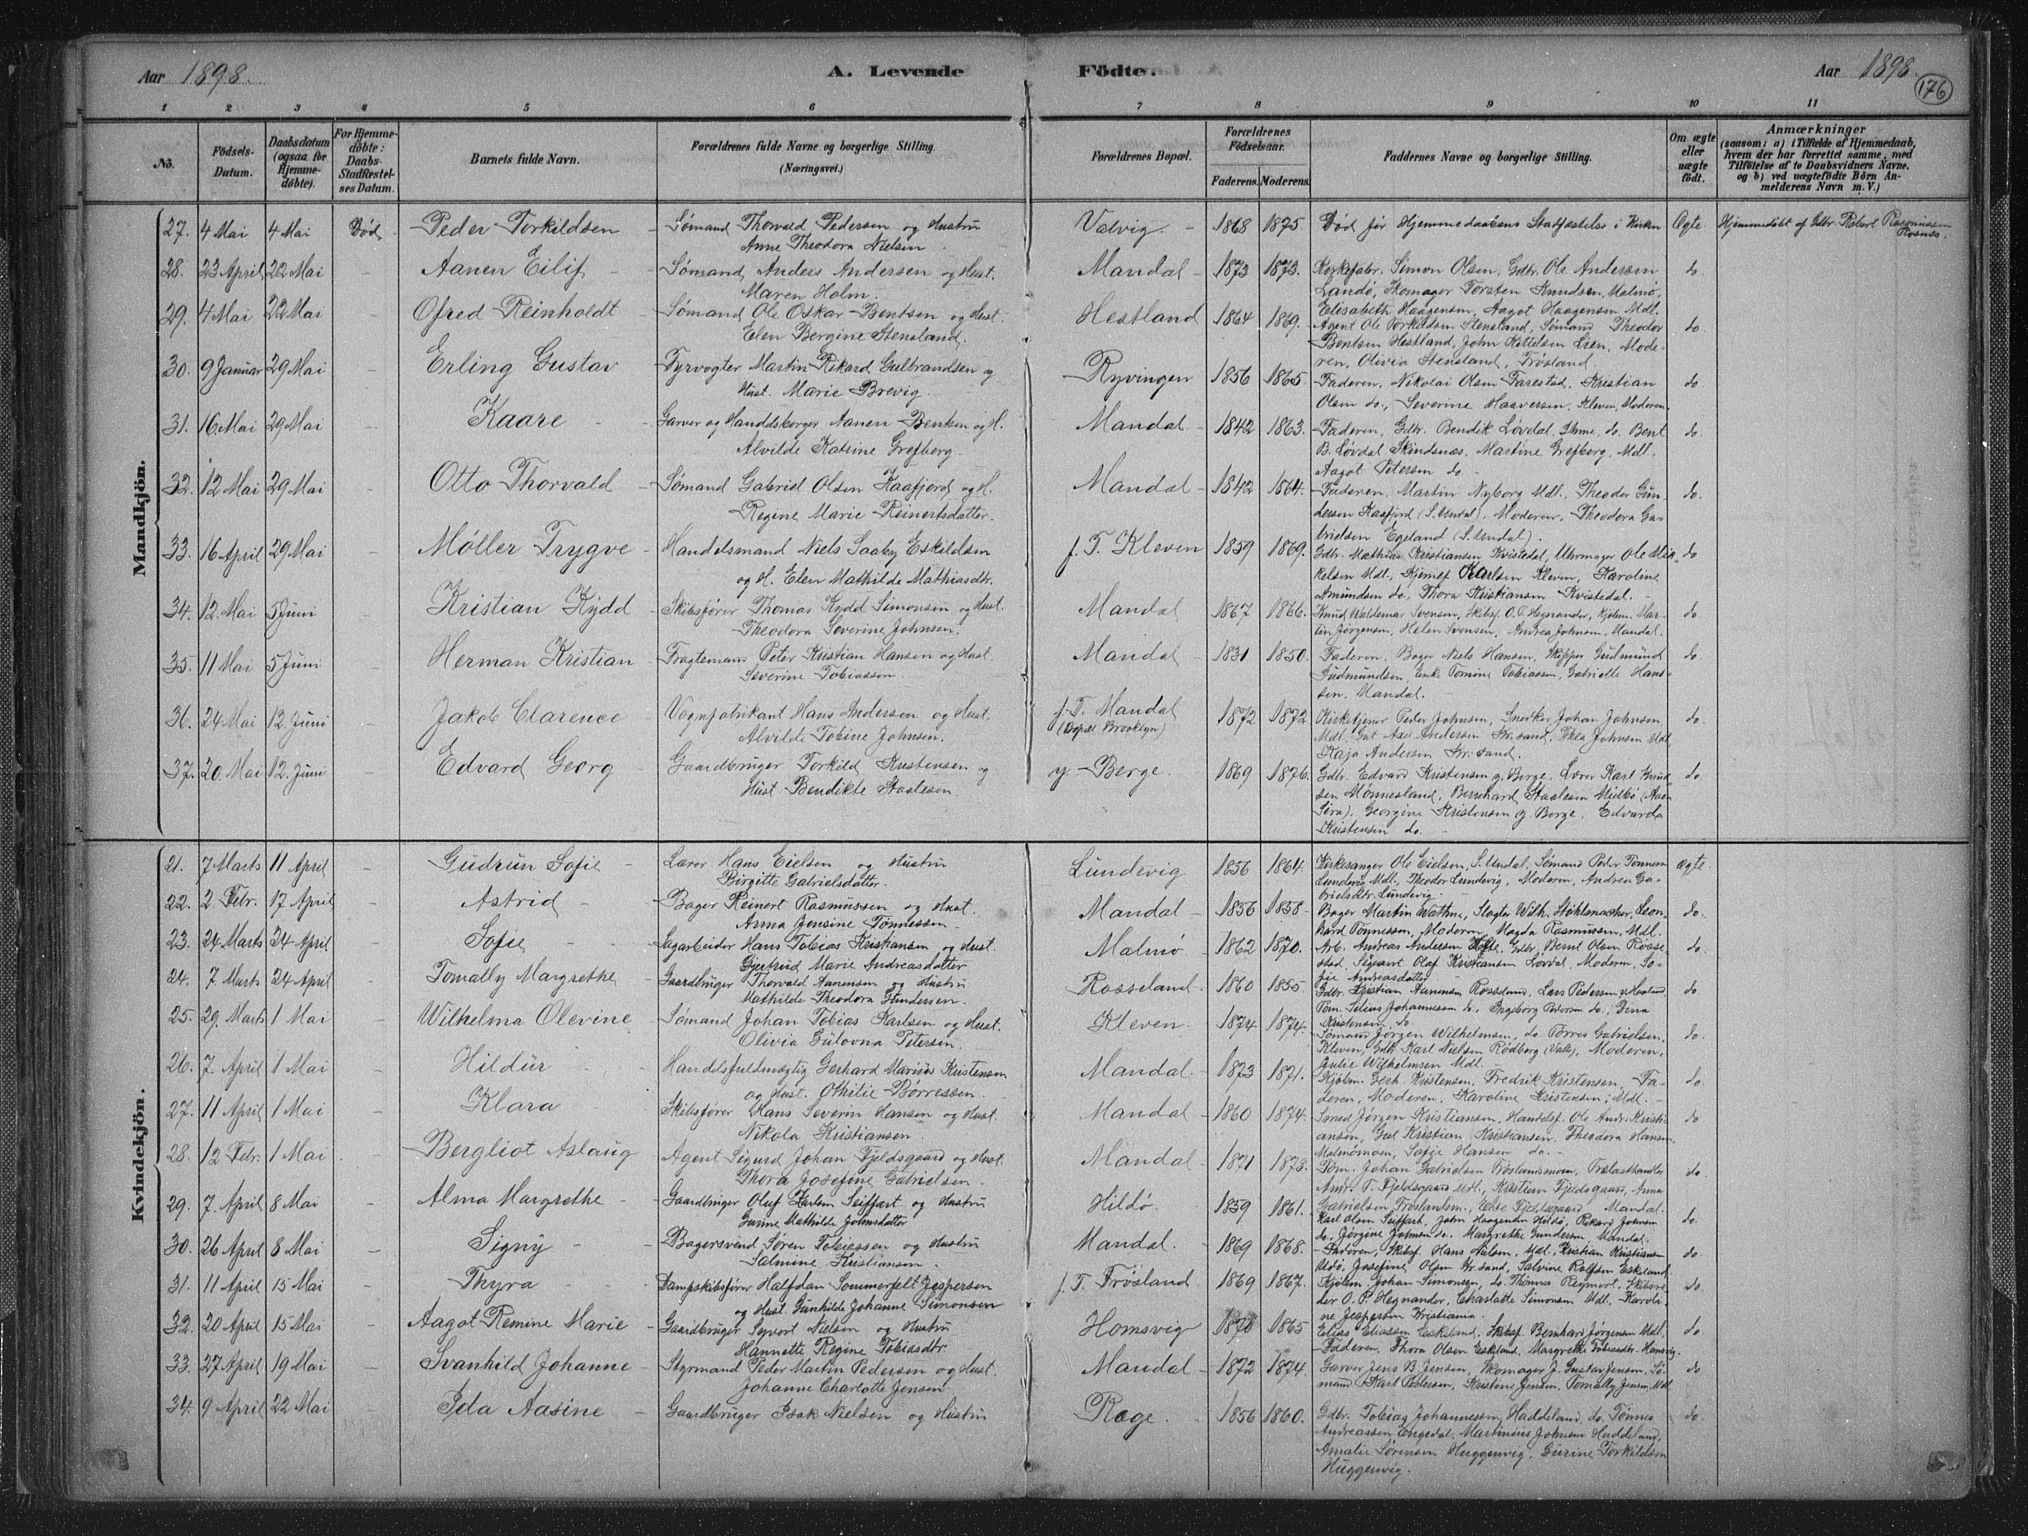 Aar 1898. A. Levende Födte. Aar 1898.
176
1 2 3 4 5 6 7 8 9 10 11
No. Födsels-Datum. Daabsdatum (ogsaa for Hjemmedöbte). For Hjemmedöbte: Daabs-Stadfæstelses Datum. Barnets fulde Navn. Forældrenes fulde Navne og borgerlige Stilling. (Næringsvei.) Forældrenes Bopæl. Forældrenes Födselsaar. Faderens. Moderens. Faddernes Navne og borgerlige Stilling. Om ægte eller uægte födt. Anmærkninger (saasom: a) i Tilfælde af Hjemmedaab, hvem der har forrettet samme, med Tilföielse af to Daabsvidners Navne, og b) ved uægtefödte Börn Anmelderens Navn m. V.)
Mandkjön.
27. 4 Mai 4 Mai Död Peder Torkildsen Sømand Thorvald Pedersen og Hustru Valvig. 1868 1875 Död før Hjemmedaabens Stadfæstelse i Kirken Ægte. Hjemmedøbt af Gdbr. Robert Rasmussen
Anne Theodora Nielsen Rosnæs.
28. 23 April 22 Mai Aanen Eilif Sømand Anders Andersen og Hust. Mandal 1873 1873. Simon Olsen, Gdbr. Ole Andersen do.
Maren Holm. Landø, Skomager Torsten Knudsen, Malmø,
Elisabeth Haagensen, Aagot Haagensen Mdl.
29. 4 Mai 22 Mai Ofred Reinholdt Sømand Ole Oskar Bentsen og Hust. Hestland 1864 1869. Agent Ole Torkildsen Stensland, Sømand Theodor do.
Elen Bergine Stensland. Bentsen Hestland, John Kittelsen Lien, Mode-
ren, Olivia Stensland, Frøsland.
30. 9 Januar 29 Mai Erling Gustav Fyrvogter Martin Rikard Gulbrandsen og Ryvingen 1856 1865 Faderen, Nikolai Olsen Farestad, Kristian do
Hust. Marie Brevig. Olsen do., Severine Haaversen, Kleven, Moderen.
31. 16 Mai 29 Mai Kaare Garver og Handelsborger Aanen Bentsen og H. Mandal 1842 1863. Faderen, Gdbr. Bendik Løvdal, Ihme, do. Bent do.
Alvilde Katrine Grefberg. B. Løvdal Skindsnæs, Martine Grefberg, Mdl.
Aagot Petersen do.
32. 12 Mai 29 Mai Otto Thorvald Sømand Gabriel Olsen Kaafjord og H. Mandal 1842 1864. Faderen, Martin Nyborg Mdl., Theodor Gun- do.
Regine Marie Reinertsdatter. dersen Kaafjord (S. Undal), Moderen, Theodora Ga-
brielsen Egeland (S. Undal).
33. 16 April 29 Mai Møller Trygve Handelsmand Niels Saaby Eskildsen f. T. Kleven 1859 1869. Gdbr. Mathias Kristiansen Kvistedal, Uhrmager Ole Mik- do
og H. Elen Mathilde Mathiasdtr. kelsen Mdl., Karlsen Kleven, Karoline
Amundsen do., Thora Kristiansen Kvistedal.
34. 12 Mai 5 Juni Kristian Kydd Skibsfører Thomas Kydd Simonsen og Hust. Mandal 1867 1866. Knud Valdemar Svensen, Skibsf. O. P. Hegnander, Kjøbm. Mar- do.
Theodora Severine Johnsen. tin Jørgensen, Helen Svensen, Andrea Johnsen, Mandal.
35. 11 Mai 5 Juni Herman Kristian Fragtemann Peter Kristian Hansen og Hust. Mandal 1831 1850. Faderen, Bager Niels Hansen, Skipper Gudmund do.
Severine Tobiassen. Gudmundsen, Enke Tomine Tobiassen, Gabrielle Han-
sen, Mandal.
36. 24 Mai 12. Juni Jakob Clarence Vognfabrikant Hans Andersen og Hust. f. T. Mandal 1872 1872 Kirketjener Peder Johnsen, Snedker Johan Johnsen, do.
Alvilde Tobine Johnsen. (Bopæl Brooklyn) Mdl. Gut Axel Andersen Kr.sand, Thea Johnsen Mdl.
Kaja Andersen Kr.sand.
37. 20. Mai 12. Juni Edvard Georg Gaardbruger Torkild Kristensen og y. Berge. 1869 1876. Gdbr. Edvard Kristensen y. Berge, Lærer Karl Knud- do
Hust Bendikte Staalesen. sen Mønnesland, Bernhard Staalesen Mielbø (Aase-
ral), Georgine Kristensen y. Berge, Edvarda
Kristensen do.
Kvindekjön.
21. 7 Marts 11 April Gudrun Sofie Lærer Hans Eielsen og Hustru Lundevig 1856 1864. Kirkesanger Ole Eielsen, S. Undal, Sømand Peder Tønnesen Ægte.
Birgitte Gabrielsdatter. Lundevig Mdl. Theodor Lundevig, Moderen, Andrea Ga-
brielsdtr. Lundevig
22. 2 Febr. 17 April Astrid Bager Reinert Rasmussen og Hust. Mandal 1856 1858. Bager Martin Wathne, Slagter Wilh. Støhlmacher, Leon- do.
Anna Jensine Tønnessen. hard Tønnessen, Moderen, Magda Rasmussen, Mdl.
23. 24 Marts 24 April Sofie Sagarbeider Hans Tobias Kristiansen og Hust. Malmø 1862 1870. Arb. Andreas Andersen Gdbr. Bernt Olsen Rosse- do.
Gjertrud Marie Andreasdatter stad, Sigeant Olaf Kristiansen Løvdal, Moderen, So-
fie Andreasdatter
24. 7 Marts 24 April Tomally Margrethe Gaardbruger Thorvald Aanensen og Hustru Rosseland 1860 1855 Gdbr. Kristian Aanensen Rosseland, Lars Pedersen do.
Mathilde Theodora Gundersen. Tom. Selius Johannesen do. Ingeborg Pedersen do., Gina
Kristensen do.
25. 29. Marts 1 Mai Wilhelma Olevine Sømand Johan Tobias Karlsen og Hust. Kleven. 1874 1874. Sømand Jørgen Wilhelmsen do. Børres Gabrielsen, do.
Olivia Gulovna Petersen. Kleven, Gdbr. Karl Nielsen Rødberg (Valle), Moderen,
Julie Wilhelmsen Mdl.
26. 7. April 1 Mai Hildur Handelsfuldmægtig Gerhard Marius Kristensen Mandal. 1873 1871. Kjøbm. Gerh. Kristensen, Fredrik Kristensen, Fa- do.
og Hust. Othilie Børresen. deren, Moderen, Karoline Kristensen, Mdl.
27. 11 April 1 Mai Klara Skibsfører Hans Severin Hansen og Hust. Mandal 1860 1874. Smed Jørgen Kristiansen, Handelsf. Ole Andr. Kristi- do
Nikola Kristiansen. ansen, Gut Kristian Kristiansen, Theodora Hansen
Malmømoen, Sofie Hansen do.
28. 12 Febr. 1 Mai Bergliot Aslaug Agent Sigurd Johan Fjeldsgaard og Hust. Mandal 1871 1873. Tøm. Johan Gabrielsen Frøslandsmoen, Trælasthandler do
Thora Josefine Gabrielsen. Andr. T. Fjeldsgaard Mdl., Kristian Fjeldsgaard, Anna
Gabrielsen Frøslandsm., Elise Fjeldsgaard Mandal.
29. 7 April 8 Mai Alma Margrethe Gaardbruger Oluf Karlsen Seiffart og Hustru Hildø. 1859 1861. Karl Olsen Seiffart, John Haagensen Hildø, Rikard Johnsen do.
Gurine Mathilde Johnsdatter do, Jørgine Johnsen do. Margrethe Gundersen, Mandal.
30. 26 April 8 Mai Signy Bagersvend Søren Tobiassen og Hustru Mandal. 1869 1868. Faderen, Skibsf. Hans Nielsen, Mdl, Kristian Kristiansen do
Salmine Kristiansen. Udø, Josefine Olsen Kr.sand, Salvine Rolfsen Eskeland
31. 11 April 15 Mai Thyra Dampskibsfører Halfdan Sommerfelt Jespersen f. T. Frøsland. 1869 1867. Kjøbm. Johan Simonsen, do Thønnes Regnert, Skibsre- do
og Hust. Gunhilde Johanne Simonsen der O. P. Hegnander, Charlotte Simonsen Mdl., Karoli-
ne Jespersen Kristiania.
32. 20 April 15 Mai Aagot Remine Marie Gaardbruger Syvert Nielsen og Hustru Homsvig 1870 1865 Elias Eliassen Eskeland, Skibsf. Bernhard Jørgensen Mdl. do
Hannette Regine Tobiasdtr. Faderen, Thora Olsen Eskeland, Margrethe Tobiasdtr. Homsvig.
33. 27 April 19 Mai Svanhild Johanne Styrmand Peder Martin Pedersen og Hust. Mandal 1872 1874. Garver Jens B. Jensen, Skomager J. Gustav Jensen, Sø- do
Johanne Charlotte Jensen mand Karl Pedersen, Kristine Jensen, Tomally Jensen Mdl
34. 9 April 22 Mai Ida Aasine Gaardbruger Isak Nielsen og Hustru Røge. 1856 1860. Gdbr. Tobias Johannessen, Haddeland, do. Tønnes do.
Andreassen Engedal, Martinius Johnsen Haddeland,
Amalie Sørensen Huggenvig, Gurine Torkildsen
Huggenvig.